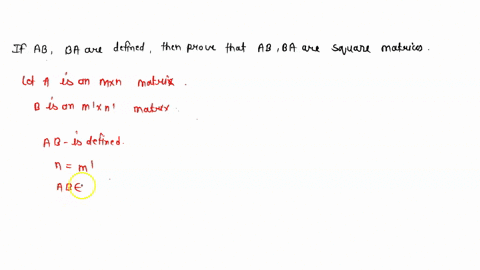 If AB, BA are defined, then prove that AB, BA are square matrices.
Let A is an mxn matrix.
B is an m'xn' matrix.
AB-is defined.
n = m'
AB∈